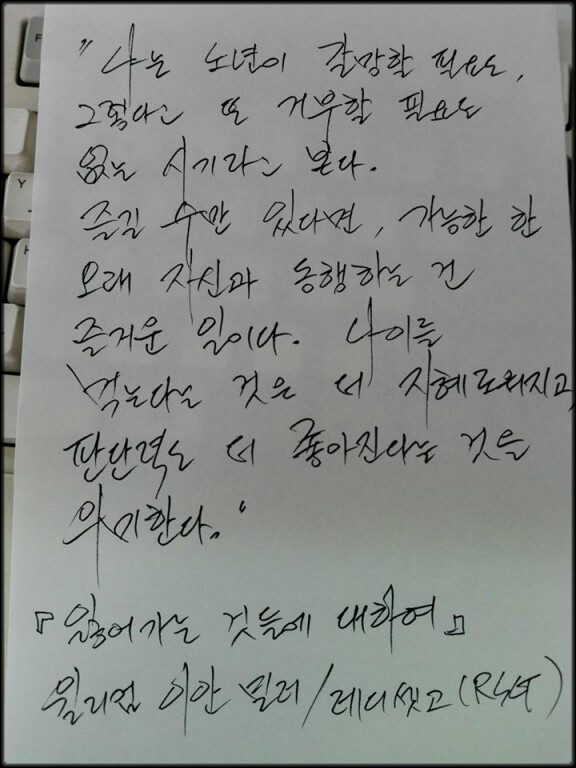 "나는 노년이 갈망할 필요도,
그렇다고 또 거부할 필요도
없는 시기라고 본다.
즐길 수만 있다면, 가능한 한
오래 자신과 동행하는 건
즐거운 일이다. 나이를
먹는다는 것은 더 지혜로워지고,
판단력도 더 좋아진다는 것을
의미한다."
『잃어가는 것들에 대하여』
윌리엄 이안 밀러/레디셋고(RSG)